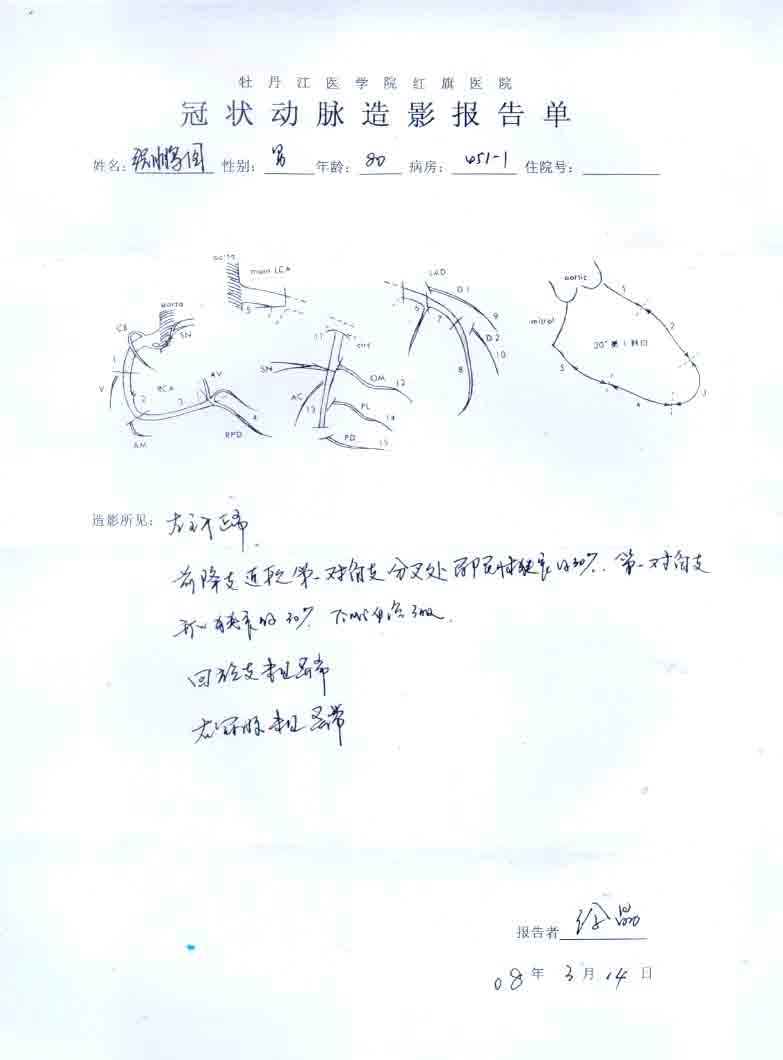 牡丹江医学院红旗医院
冠状动脉造影报告单
姓名: 性别: 男 年龄: 80 病房: 451-1 住院号:
aorta
main LCA
5
aorta
CB
SN
1
V
RCA
AV
2
3
4
AM
RPD
11
SN
OM
12
AC
13
PL
14
PD
15
LAD
D1
6
7
9
D2
10
8
aortic
mitral
1
2
3
4
5
造影所见: 左主干正常
前降支近段第一对角支分叉处局限性狭窄约30%. 第一对角支
开口狭窄约30% 下血流3级.
回旋支未见异常
右冠脉未见异常
报告者
08年3月14日